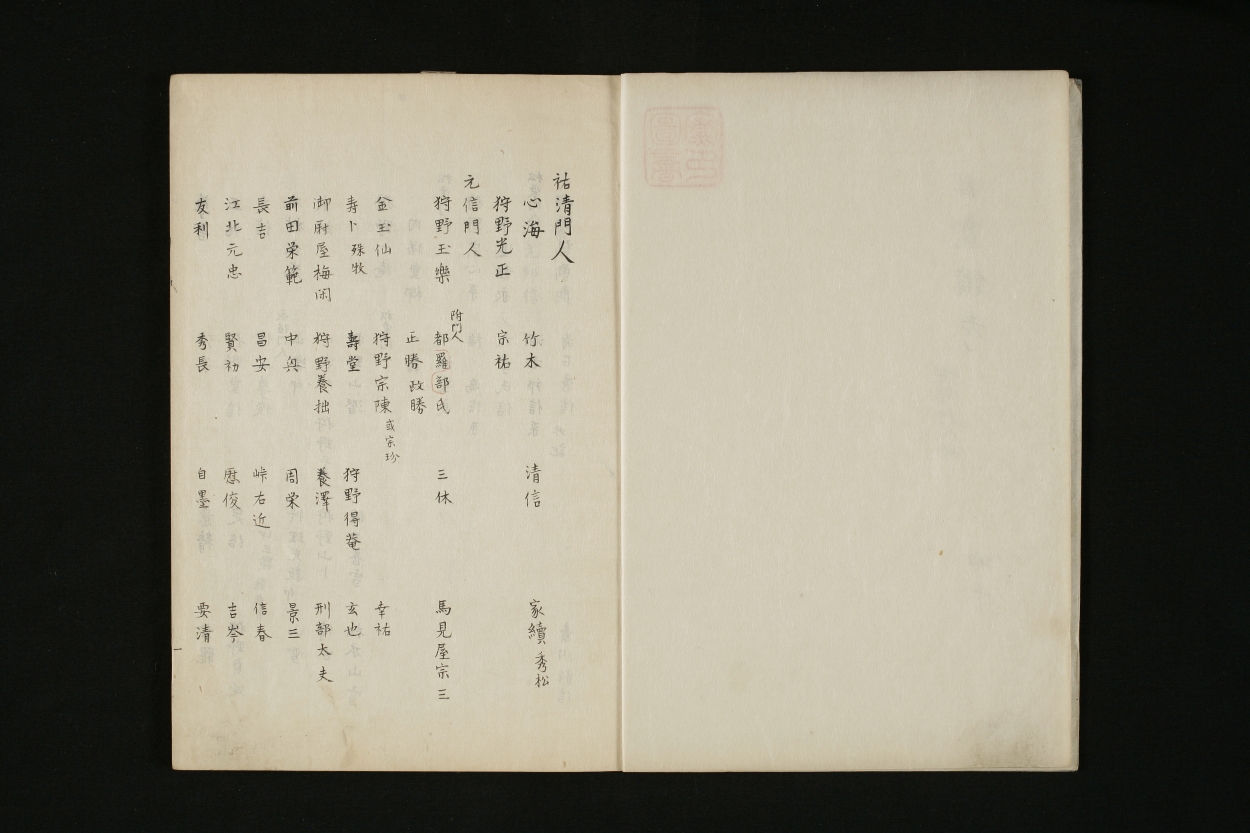 祐清門人
心海 竹木 清信 家續 秀松
狩野光正 宗祐
元信門人
狩野玉樂 附門人 都羅部氏 三休 馬見屋宗三
正勝 政勝
金玉仙 狩野宗陳 或宗珍 幸祐
寿卜 殊牧 壽堂 狩野得菴 玄也
御厨屋梅闲 狩野養拙 養澤 刑部太夫
前田栄範 中與 周栄 景三
長吉 昌安 峠右近 信春
江北元忠 賢初 俊 吉岑
友利 秀長 自墨 要清